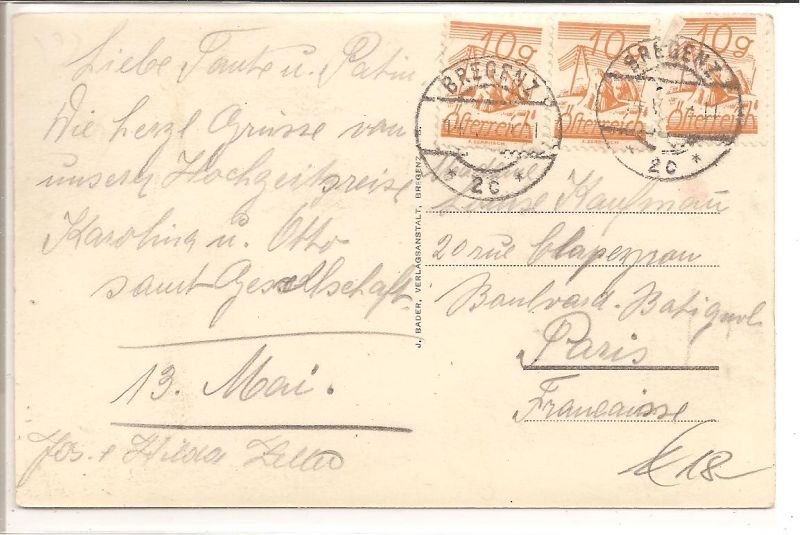 Liebe Tante u. Patin
Wie herzl Grüsse von
unserer Hochzeitsreise
Karolina u. Otto
samt Gesellschaft.
13. Mai.
Jos. e Hilda
J. BADER, VERLAGSANSTALT, BREGENZ
10g
Österreich
10
Österreich
10g
Österreich
BREGENZ
* 2c *
BREGENZ
2c *
Madame
Louise Kaufmann
20 rue Clapeyron
Boulevard. Batignol
Paris
Francaisse
18